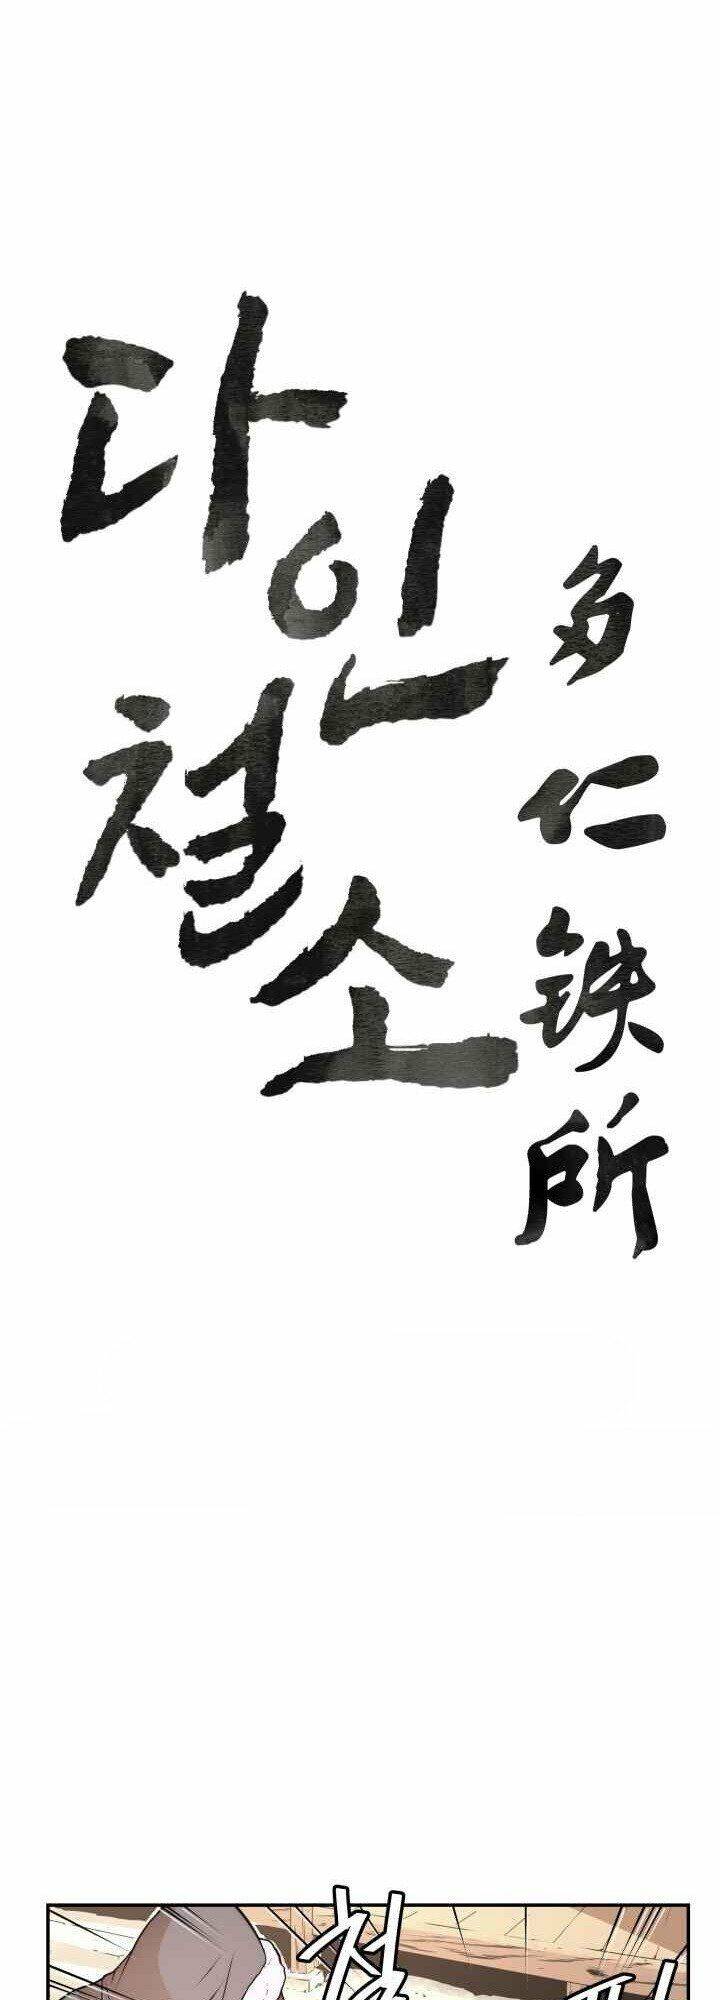 다인
철소
多仁鉄所
철